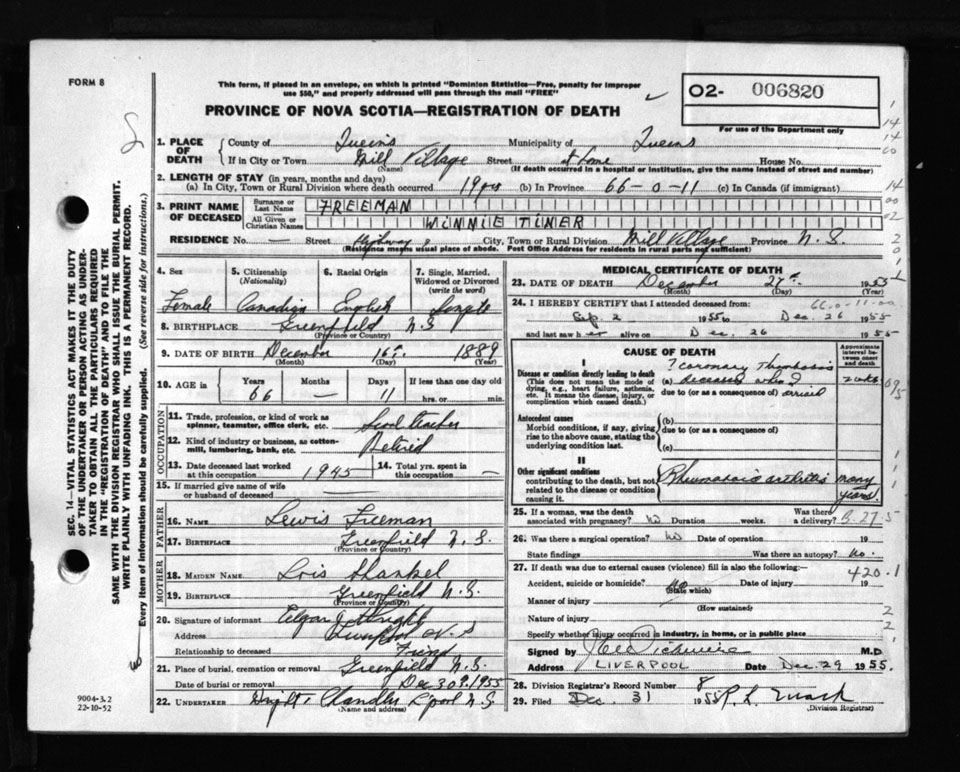 FORM 8
This form, if placed in an envelope, on which is printed "Dominion Statistics—Free, penalty for improper
use $50," and properly addressed will pass through the mail "FREE"
PROVINCE OF NOVA SCOTIA—REGISTRATION OF DEATH
O2- 006820
For use of the Department only
1. PLACE OF DEATH
County of Queens Municipality of Queens
If in City or Town Mill Village Street at home House No.
(Name) (If death occurred in a hospital or institution, give the name instead of street and number)
2. LENGTH OF STAY (in years, months and days)
(a) In City, Town or Rural Division where death occurred 19 yrs (b) In Province 66-0-11 (c) In Canada (if immigrant)
3. PRINT NAME OF DECEASED
Surname or Last Name FREEMAN
All Given or Christian Names WINNIE TINER
RESIDENCE No. — Street Highway 8 City, Town or Rural Division Mill Village Province N.S.
(Residence means usual place of abode. Post Office Address for residents in rural parts not sufficient)
4. Sex Female
5. Citizenship (Nationality) Canadian
6. Racial Origin English
7. Single, Married, Widowed or Divorced (write the word) Single
8. BIRTHPLACE Greenfield N.S.
(Province or Country)
9. DATE OF BIRTH December 16 1889
(Month) (Day) (Year)
10. AGE in Years 66 Months — Days 11 If less than one day old
hrs. or min.
OCCUPATION
11. Trade, profession, or kind of work as spinner, teamster, office clerk, etc. School teacher
12. Kind of industry or business, as cotton-mill, lumbering, bank, etc. Retired
13. Date deceased last worked at this occupation 1945
14. Total yrs. spent in this occupation —
15. If married give name of wife or husband of deceased —
FATHER
16. NAME Lewis Freeman
17. BIRTHPLACE Greenfield N.S.
(Province or Country)
MOTHER
18. MAIDEN NAME Lois Hankel
19. BIRTHPLACE Greenfield N.S.
(Province or Country)
20. Signature of informant
Address N.S
Relationship to deceased Friend
21. Place of burial, cremation or removal Greenfield N.S.
Date of burial or removal Dec 30th 1955
22. UNDERTAKER Chandler L'pool N.S.
(Name and address)
MEDICAL CERTIFICATE OF DEATH
23. DATE OF DEATH December 27th 1955
(Month) (Day) (Year)
24. I HEREBY CERTIFY that I attended deceased from 66.0.11.00
Sep. 2 1955 to Dec. 26 1955
and last saw her alive on Dec. 26 1955
CAUSE OF DEATH
Approximate interval between onset and death
I
Disease or condition directly leading to death
(This does not mean the mode of dying, e.g., heart failure, asthenia, etc. It means the disease, injury, or complication which caused death.)
? coronary thrombosis
(a) deceased when I
due to (or as a consequence of) arrived
Antecedent causes
Morbid conditions, if any, giving rise to the above cause, stating the underlying condition last.
(b)
due to (or as a consequence of)
(c)
II
Other significant conditions
contributing to the death, but not related to the disease or condition causing it.
Rheumatoid arthritis many years
25. If a woman, was the death associated with pregnancy? No Duration weeks. Was there a delivery?
26. Was there a surgical operation? No Date of operation 19
State findings Was there an autopsy? No.
27. If death was due to external causes (violence) fill in also the following:— 420.1
Accident, suicide or homicide? No Date of injury 19
(State which)
Manner of injury
(How sustained)
Nature of injury
Specify whether injury occurred in industry, in home, or in public place
Signed by M.D.
Address LIVERPOOL Date Dec. 29 1955.
28. Division Registrar's Record Number 8
29. Filed Dec. 31 1955 R. L. Mack
(Division Registrar)
SEC. 14—VITAL STATISTICS ACT MAKES IT THE DUTY
OF THE UNDERTAKER OR PERSON ACTING AS UNDER-
TAKER TO OBTAIN ALL THE PARTICULARS REQUIRED
IN THE "REGISTRATION OF DEATH" AND TO FILE THE
SAME WITH THE DIVISION REGISTRAR WHO SHALL ISSUE THE BURIAL PERMIT.
WRITE PLAINLY WITH UNFADING INK. THIS IS A PERMANENT RECORD.
Every item of information should be carefully supplied. (See reverse side for instructions.)
9004-3.2
22-10-52